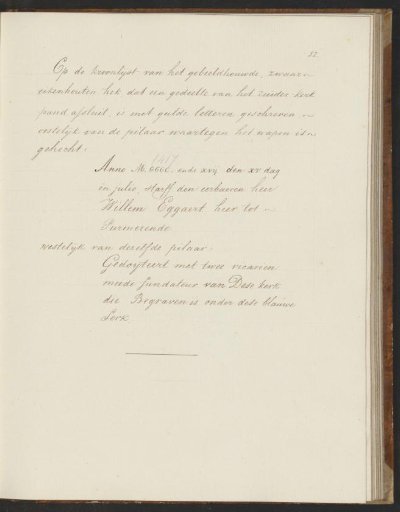 22
Op de kroonlijst van het gebeeldhouwde, zwaar
eikenhouten hek dat een gedeelte van het zuider kerk
pand afsluit, is met gulde letteren geschreven
oostelijk van de pilaar waartegen het wapen is
gehecht:
1417
Anno M. CCCC. ende xvij den xv dag
in julio, starff den eerbaeren heer
Willem Eggaert heer tot
Purmerende
westelijk van dezelfde pilaar:
Gedoyteert met twee vicarien
meede fundateur van Dese kerk
die Begraven is onder dese blauwe
Serk.